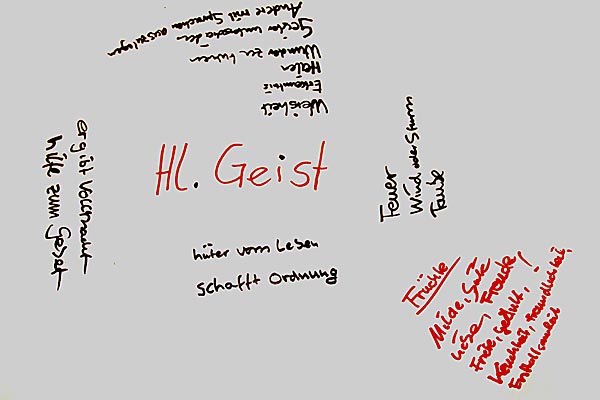 Andere mit Sprachen auszulegen
Geister unterscheiden
Wunder zu führen
Heiler
Erkenntnis
Weisheit
er gibt Vollmacht
hilfe zum Gebet
Hl. Geist
Feuer
Wind oder Sturm
Taube
hüter vom Leben
schafft Ordnung
Früchte
Milde, Güte
Liebe, Freude!
Friede, geduld,
Keuchheit, freundlichkeit,
Enthaltsamkeit